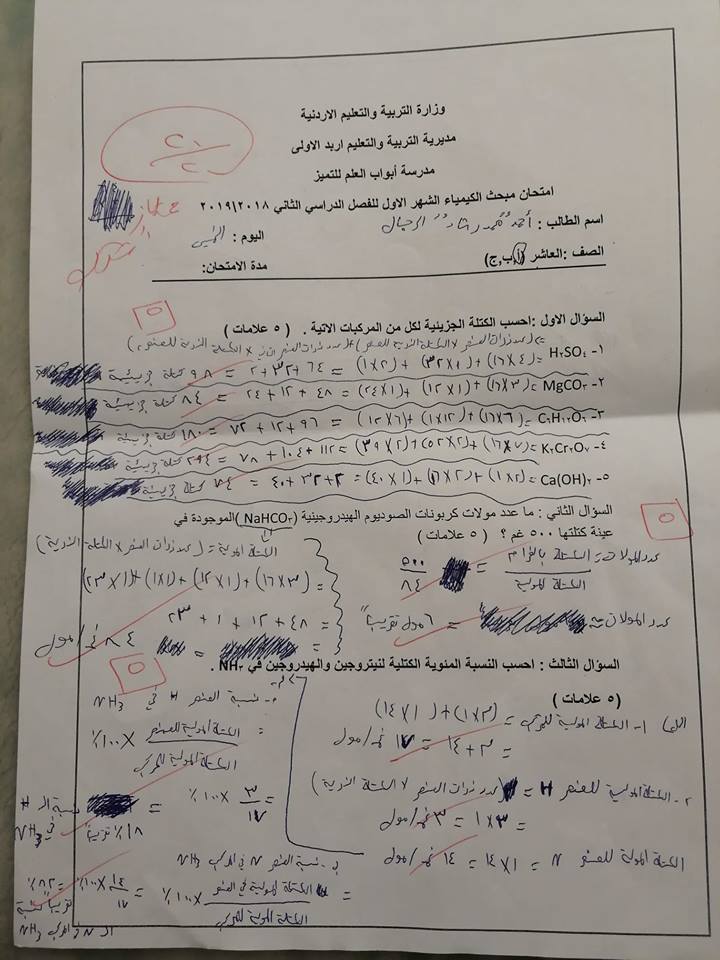 وزارة التربية والتعليم الاردنية
مديرية التربية والتعليم اربد الاولى
مدرسة أبواب العلم للتميز
امتحان مبحث الكيمياء الشهر الاول للفصل الدراسي الثاني ٢٠١٨\٢٠١٩
٢٠/٢٠
ممتاز
اسم الطالب : أحمد محمد رشاد الرجال اليوم :
الصف :العاشر (أ,ب,ج) مدة الامتحان:
٥
السؤال الاول :احسب الكتلة الجزيئية لكل من المركبات الاتية . ( ٥ علامات )
=(عدد ذرات العنصر × الكتلة الذرية للعنصر)+(عدد ذرات العنصر الثاني × الكتلة الذرية للعنصر٢)
١- H٢SO٤ =(٤×١٦)+(١×٣٢)+(٢×١) = ٦٤+٣٢+٢ = ٩٨ كتلة جزيئية
٢- MgCO٣ =(٣×١٦)+(١×١٢)+(١×٢٤)= ٤٨ + ١٢ + ٢٤ = ٨٤ كتلة جزيئية
٣- C٦H١٢O٦ =(٦×١٦)+(١٢×١)+(٦×١٢)= ٩٦+١٢+٧٢ = ١٨٠ كتلة جزيئية
٤- K٢Cr٢O٧ =(٧×١٦)+(٢×٥٢)+(٢×٣٩)= ١١٢+١٠٤+٧٨ = ٢٩٤ كتلة جزيئية
٥- Ca(OH)٢ =(٢×١)+(٢×١٦)+(١×٤٠)= ٢+٣٢+٤٠ = ٧٤ كتلة جزيئية
السؤال الثاني : ما عدد مولات كربونات الصوديوم الهيدروجينية (NaHCO٣) الموجودة في
عينة كتلتها ٥٠٠ غم ؟ ( ٥ علامات )
٥
عدد المولات = الكتلة بالغرام / الكتلة المولية = ٥٠٠ / ٨٤
عدد المولات = ٦ مول تقريباً
الكتلة المولية = (عدد ذرات العنصر × الكتلة الذرية)
= (٣×١٦)+(١×١٢)+(١×١)+(١×٢٣)
= ٤٨ + ١٢ + ١ + ٢٣
= ٨٤ غ/مول
٥
السؤال الثالث : احسب النسبة المئوية الكتلية لنيتروجين والهيدروجين في NH٣ .
(٥ علامات )
١- الكتلة المولية للمركب = (٣×١)+(١×١٤)
= ٣+١٤ = ١٧ غم/مول
٢- الكتلة المولية للعنصر H = (عدد ذرات العنصر × الكتلة الذرية)
= ٣×١ = ٣ غم/مول
الكتلة المولية للعنصر N = ١×١٤ = ١٤ غم/مول
نسبة العنصر H في NH3
= الكتلة المولية للعنصر / الكتلة المولية للمركب × ١٠٠٪
= ٣/١٧ × ١٠٠٪ = ١٨٪ تقريباً نسبة الـ H في NH3
ب- نسبة العنصر N في المركب NH3
= الكتلة المولية في العنصر / الكتلة المولية للمركب × ١٠٠٪
= ١٤/١٧ × ١٠٠٪ = ٨٢٪ تقريباً نسبة
الـ N في المركب NH3